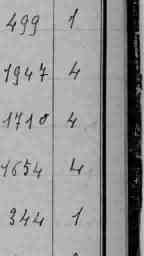 499 1
1947 4
1710 4
1654 4
344 1